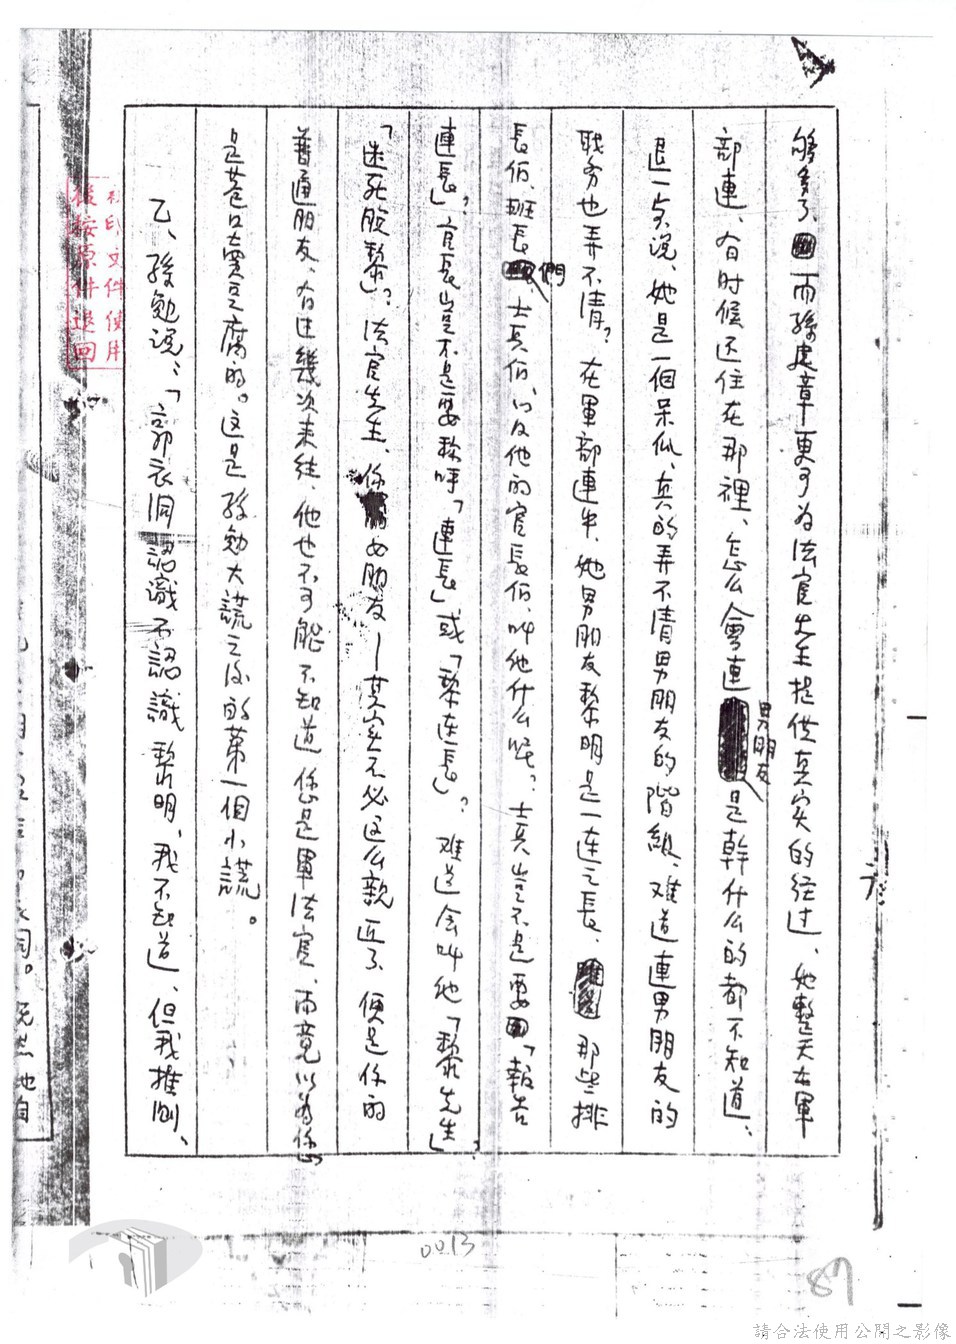 够多了、而孫建章更可为法官先生提供真实的经过、她整天在軍
部連、有时候还住在那裡、怎么會連男朋友是幹什么的都不知道、
退一步说、她是一個呆瓜、真的弄不清男朋友的階級、难道連男朋友的
职务也弄不清？在軍部連中、她男朋友黎明是一連之長、那些排
長伯、班長們、士兵伯、以及他的官長伯、叫他什么呢？士兵豈不是要「報告
連長」？官長豈不是要称呼「連長」或「黎連長」？难道会叫他「黎先生」？
「迷死脫黎」？法官先生、你女朋友—其实不必这么親近了、便是你的
普通朋友、有过幾次来往、他也不可能不知道您是軍法官、而竟以为您
是巷口賣豆腐的。这是孫勉大謊之後的第一個小謊。
乙、孫勉说、「郭衣洞認識不認識黎明、我不知道、但我推測、
後按原件退回
文件使用
0013
87
請合法使用公開之影像